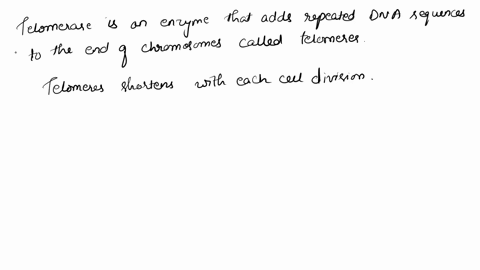 Telomerase is an enzyme that adds repeated DNA sequences
to the end of chromosomes called telomeres.
Telomeres shortens with each cell division.